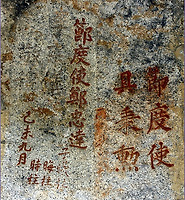 節度使
具秉勲
節度使鄭忠達
己未九月